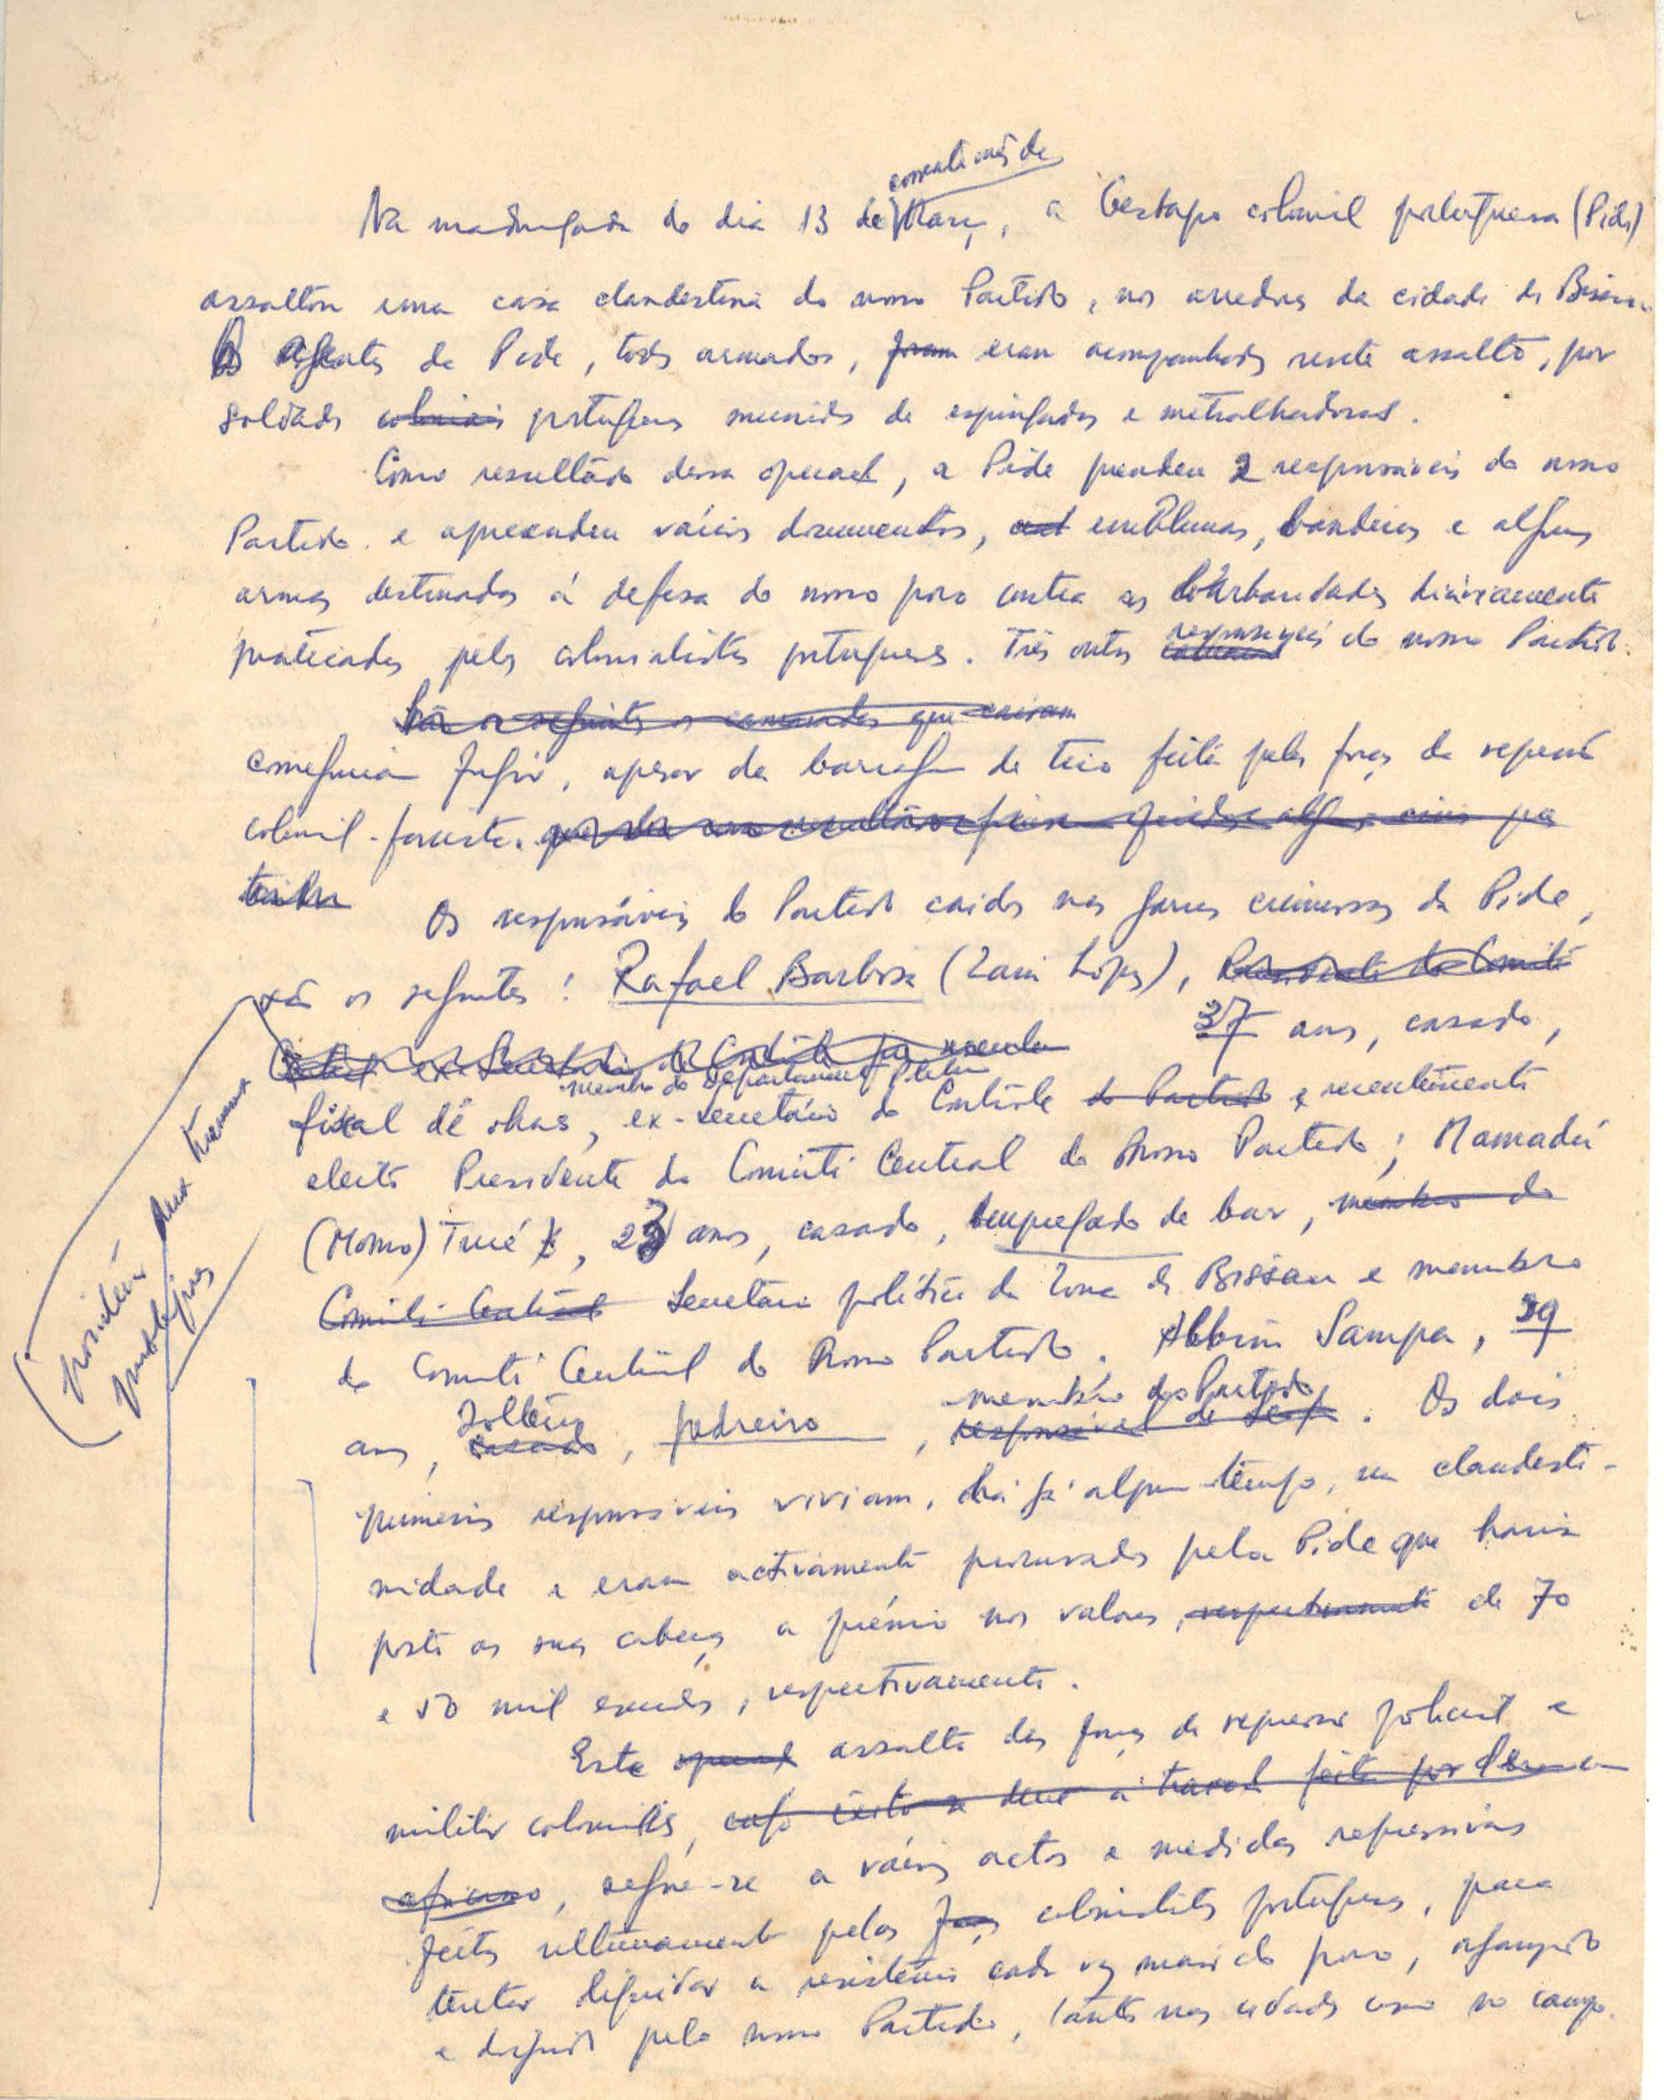 corrente mês de
Na madrugada do dia 13 de Março, a Gestapo colonial portuguesa (Pide)
assaltou uma casa clandestina do nosso Partido, nos arredores da cidade de Bissau
Os Agentes da Pide, todos armados, foram eram acompanhados neste assalto, por
soldados coloniais portugueses munidos de espingardas e metralhadoras.
Como resultado dessa operação, a Pide prendeu 2 responsáveis do nosso
Partido e apreendeu vários documentos, emblemas, bandeiras e algumas
armas destinadas á defesa do nosso povo contra as barbaridades diáriamente
praticadas pelos colonialistas portugueses. Três outros responsáveis do nosso Partido
São os seguintes os camaradas que cairam
conseguiram fugir, apesar da barragem de tiro feita pelas forças da repressão
colonial-fascista.
Os responsáveis do Partido caidos nas garras criminosas da Pide,
são os seguintes: Rafael Barbosa (Zain Lopes), Presidente do Comité
37 anos, casado,
membro do Departamento
fiscal de obras, ex-secretário do Contrôle do Partido e recentemente
eleito Presidente do Comité Central do Nosso Partido; Mamadú
(Momo) Turé, 23 anos, casado, empregado de bar, membro do
Comité Central Secretário político da Zona de Bissau e membro
do Comité Central do Nosso Partido. Albino Sampa, 39
anos, solteiro casado, pedreiro, membro do Partido responsável de . Os dois
primeiros responsáveis viviam, há já algum tempo, na clandesti-
nidade e eram activamente procurados pela Pide que havia
posto as suas cabeças a prémio nos valores, respectivamente de 70
e 50 mil escudos, respectivamente.
Este assalto das forças de repressão policial e
militar coloniais, cujo êxito se deve à traição feita por
africano, segue-se a vários actos e medidas repressivas
feitas ultimamente pelos colonialistas portugueses, para
tentar liquidar a resistência cada vez maior do povo,
e dirigido pelo nosso Partido, tanto nas cidades como no campo.